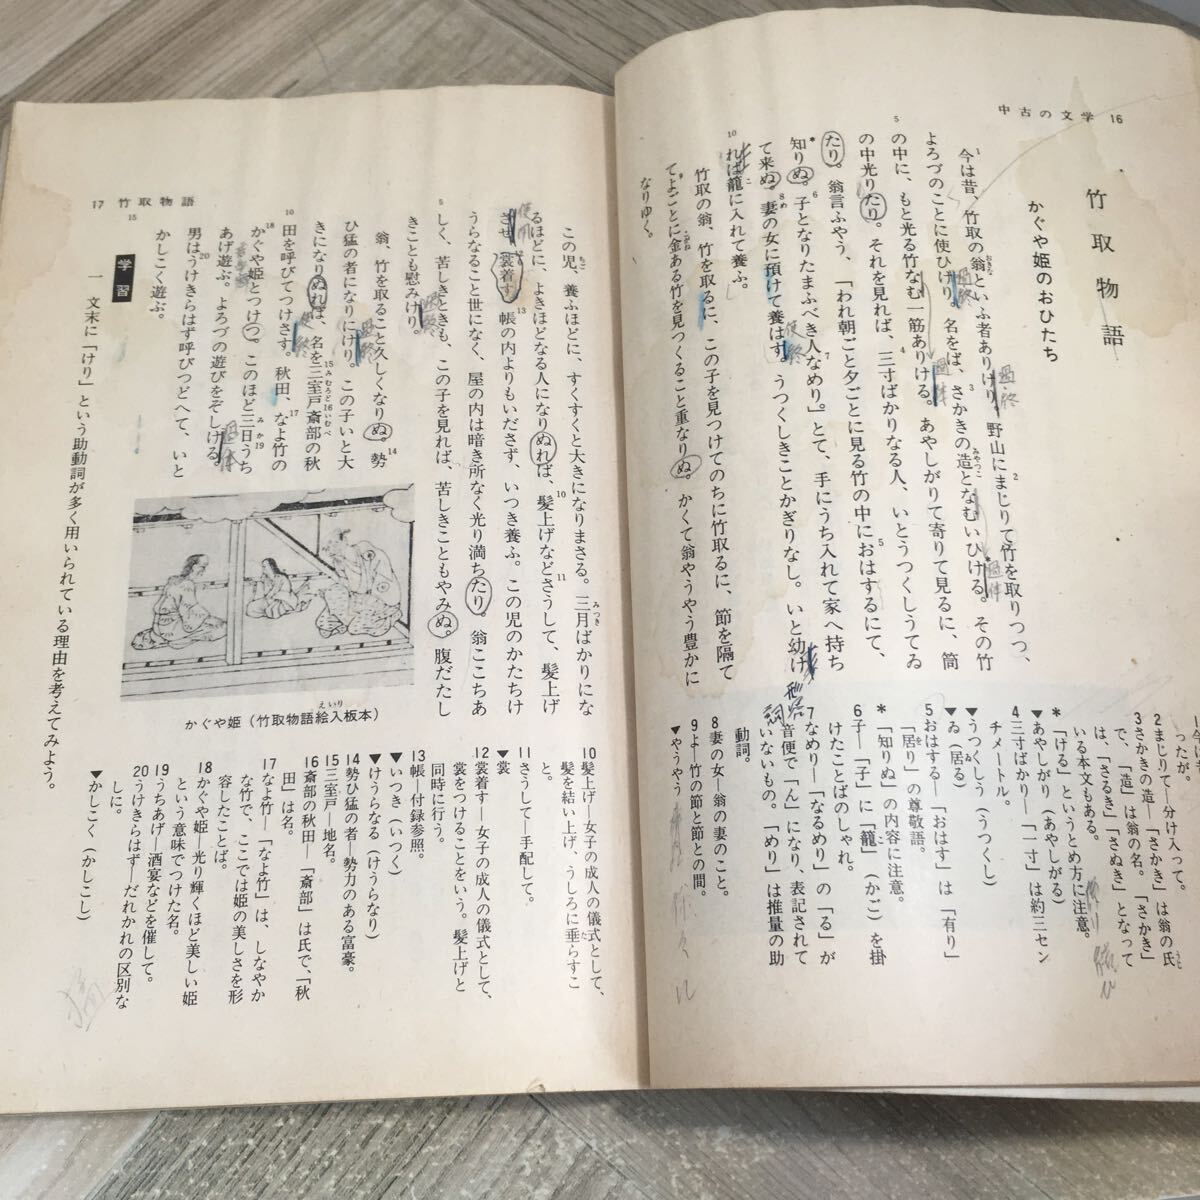 中古の文学 16
竹取物語
かぐや姫のおひたち
今は昔、竹取の翁といふ者ありけり。野山にまじりて竹を取りつつ、
よろづのことに使ひけり。名をば、さかきの造となむいひける。その竹
の中に、もと光る竹なむ一筋ありける。あやしがりて寄りて見るに、筒
の中光りたり。それを見れば、三寸ばかりなる人、いとうつくしうてゐ
たり。翁言ふやう、「われ朝ごと夕ごとに見る竹の中におはするにて、
知りぬ。子となりたまふべき人なめり。」とて、手にうち入れて家へ持ち
て来ぬ。妻の女に預けて養はす。うつくしきことかぎりなし。いと幼け
れば籠に入れて養ふ。
竹取の翁、竹を取るに、この子を見つけてのちに竹取るに、節を隔て
てよごとに金ある竹を見つくること重なりぬ。かくて翁やうやう豊かに
なりゆく。
ったが。
2まじりて―分け入って。
3さかきの造―「さかき」は翁の氏
で、「造」は翁の名。「さかき」
は、「さるき」「さぬき」となって
いる本文もある。
*「ける」というとめ方に注意。
▼あやしがり（あやしがる）
4三寸ばかり―「一寸」は約三セン
チメートル。
▼うつくしう（うつくし）
▼ゐ（居る）
5おはする―「おはす」は「有り」
「居り」の尊敬語。
*「知りぬ」の内容に注意。
6子―「子」に「籠」（かご）を掛
けたことばのしゃれ。
7なめり―「なるめり」の「る」が
音便で「ん」になり、表記されて
いないもの。「めり」は推量の助
動詞。
8妻の女―翁の妻のこと。
9よ―竹の節と節との間。
▼やうやう
17 竹取物語
この児、養ふほどに、すくすくと大きになりまさる。三月ばかりにな
るほどに、よきほどなる人になりぬれば、髪上げなどさうして、髪上げ
させ、裳着す。帳の内よりもいださず、いつき養ふ。この児のかたちけ
うらなること世になく、屋の内は暗き所なく光り満ちたり。翁ここちあ
しく、苦しきときも、この子を見れば、苦しきこともやみぬ。腹だたし
きことも慰みけり。
翁、竹を取ること久しくなりぬ。勢
ひ猛の者になりにけり。この子いと大
きになりぬれば、名を三室戸斎部の秋
田を呼びてつけさす。秋田、なよ竹の
かぐや姫とつけつ。このほど三日うち
あげ遊ぶ。よろづの遊びをぞしける。
男はうけきらはず呼びつどへて、いと
かしこく遊ぶ。
学習
一 文末に「けり」という助動詞が多く用いられている理由を考えてみよう。
かぐや姫（竹取物語絵入板本）
10髪上げ―女子の成人の儀式として、
髪を結い上げ、うしろに垂らすこ
と。
11さうして―手配して。
▼裳
12裳着す―女子の成人の儀式として、
裳をつけることをいう。髪上げと
同時に行う。
13帳―付録参照。
▼いつき（いつく）
▼けうらなる（けうらなり）
14勢ひ猛の者―勢力のある富豪。
15三室戸―地名。
16斎部の秋田―「斎部」は氏で、「秋
田」は名。
17なよ竹―「なよ竹」は、しなやか
な竹で、ここでは姫の美しさを形
容したことば。
18かぐや姫―光り輝くほど美しい姫
という意味でつけた名。
19うちあげ―酒宴などを催して。
20うけきらはず―だれかれの区別な
しに。
▼かしこく（かしこし）